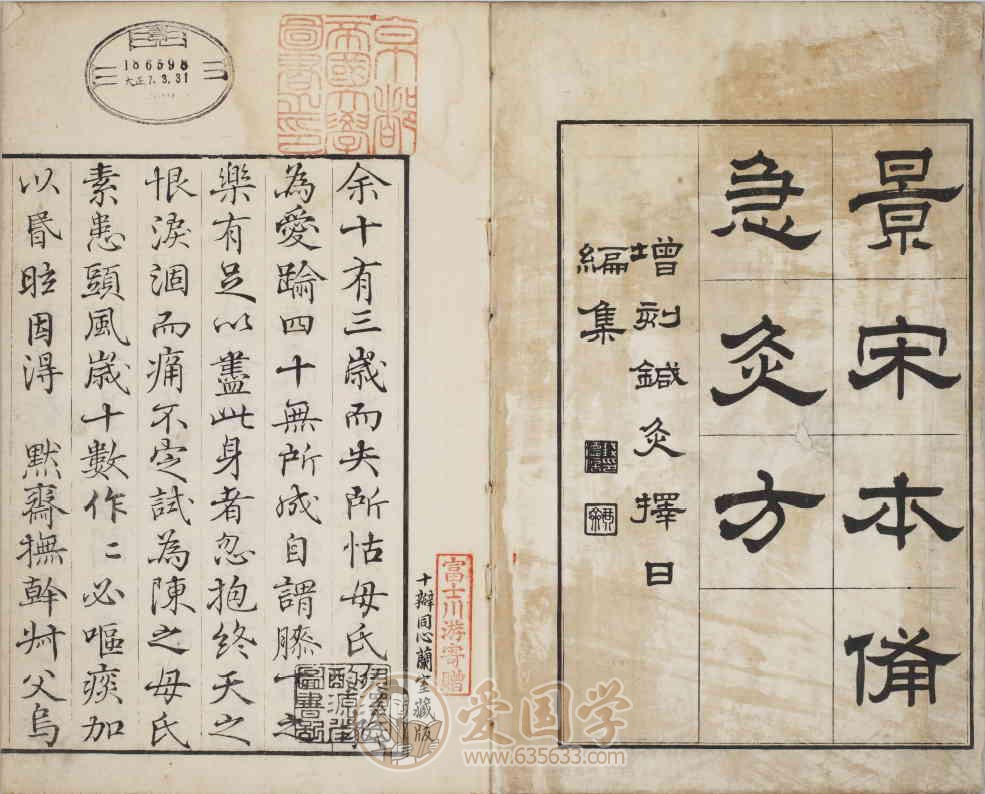 景宋本備
急灸方
增刻鍼灸擇日
編集
十瓣同心蘭室藏版
富士川游寄贈
京都
帝國大學
圖書之印
186598
大正7.3.31
余十有三歲而失所怙毋氏
為愛踰四十無所成自謂膝下之
樂有足以盡此身者忽抱終天之
恨淚涸而痛不定試為陳之毋氏
素患頭風歲十數作〻必嘔痰加
以昬眩因得 默齋撫幹艸父烏
爱国学
www.635633.com